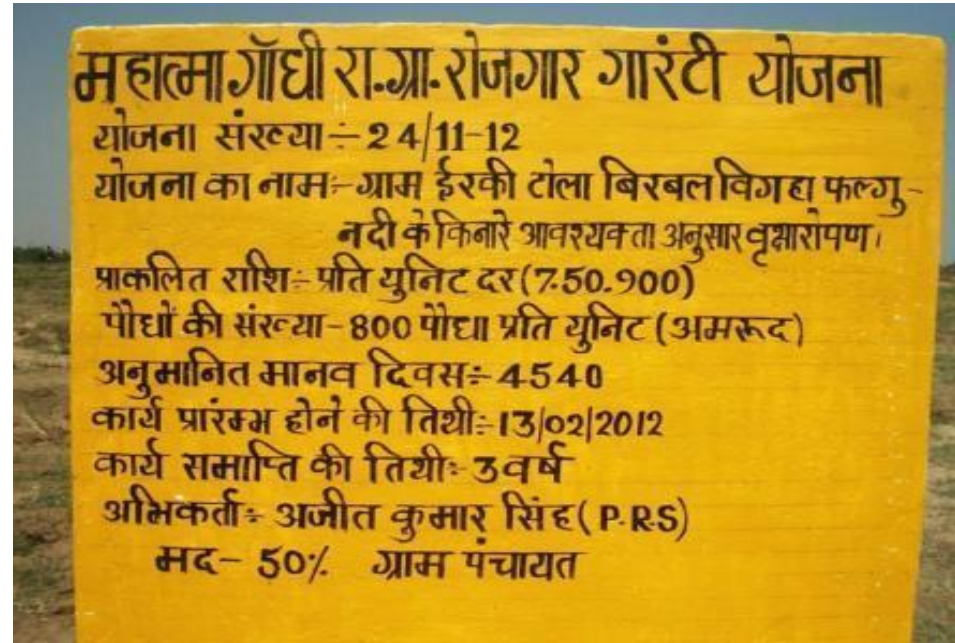 महात्मा गाँधी रा.ग्रा.रोजगार गारंटी योजना
योजना संख्या ÷ 24/11-12
योजना का नाम:- ग्राम ईरकी टोला बिरबल विगहा फल्गु-
नदी के किनारे आवश्यकता अनुसार वृक्षारोपण।
प्राकलित राशि:- प्रति युनिट दर (7.50.900)
पौधों की संख्या - 800 पौधा प्रति युनिट (अमरूद)
अनुमानित मानव दिवस:- 4540
कार्य प्रारंम्भ होने की तिथी:- 13/02/2012
कार्य समाप्ति की तिथी:- 3 वर्ष
अभिकर्ता:- अजीत कुमार सिंह (P.R.S)
मद - 50% ग्राम पंचायत